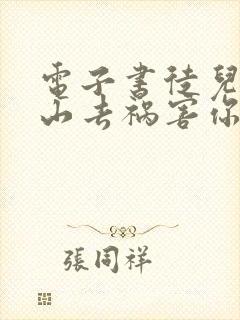 電子書徒兒
山去禍害你
張同祥